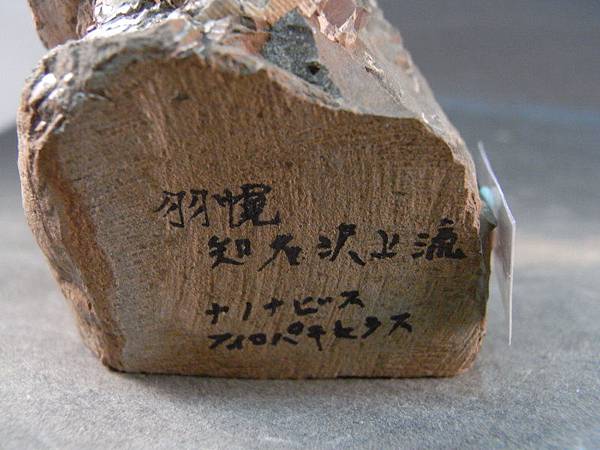 羽幌
知名沢上流
ナノナビス
フィロパキセラス